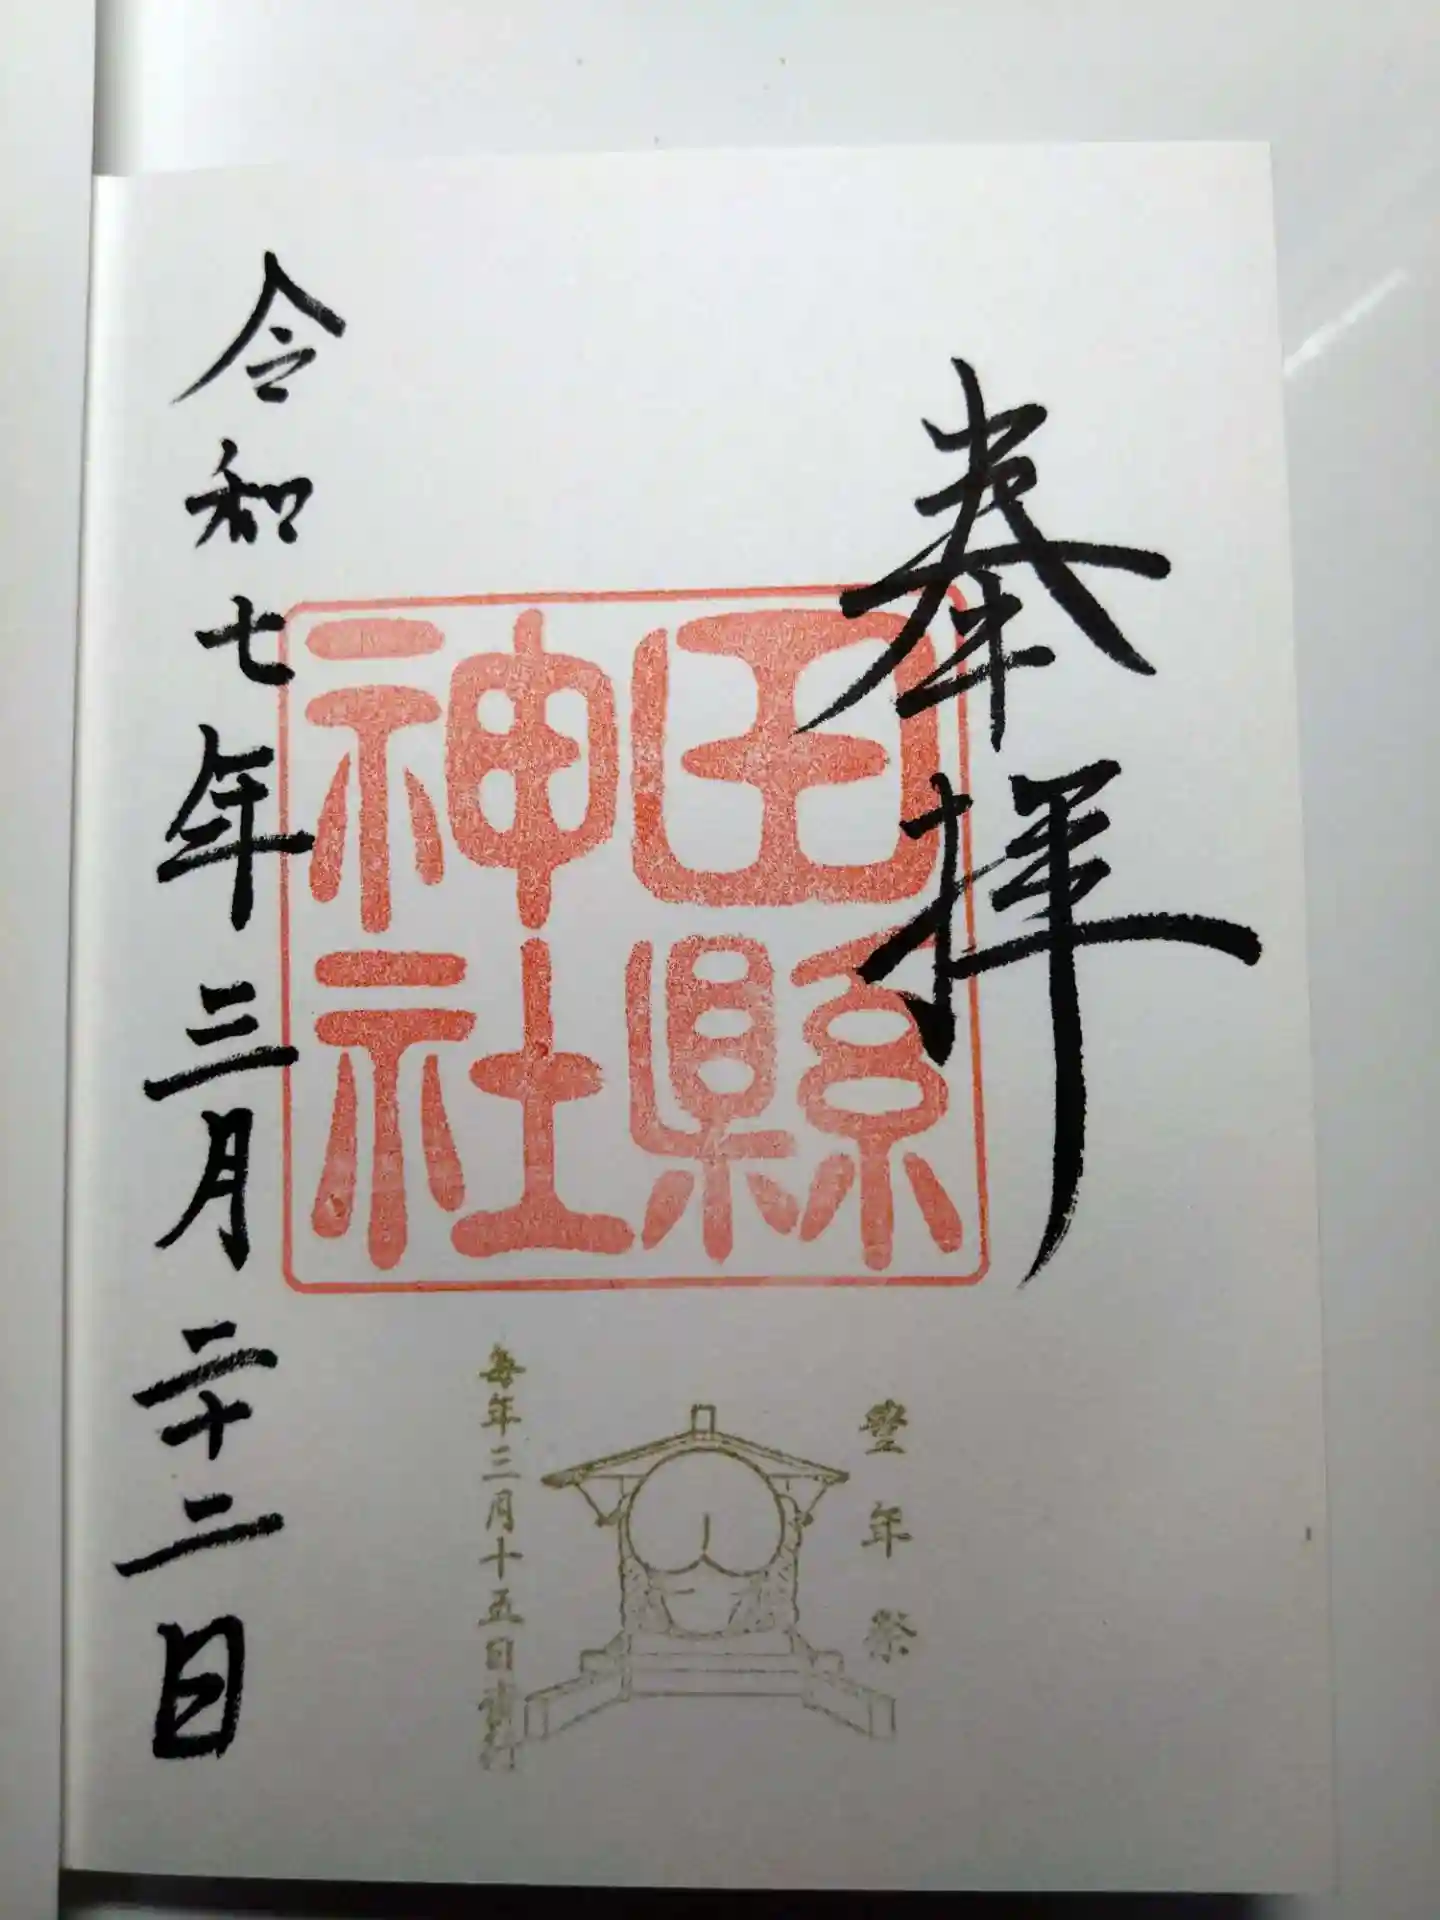 奉拝
田縣
神社
豊年祭
毎年三月十五日斎行
令和七年三月二十二日